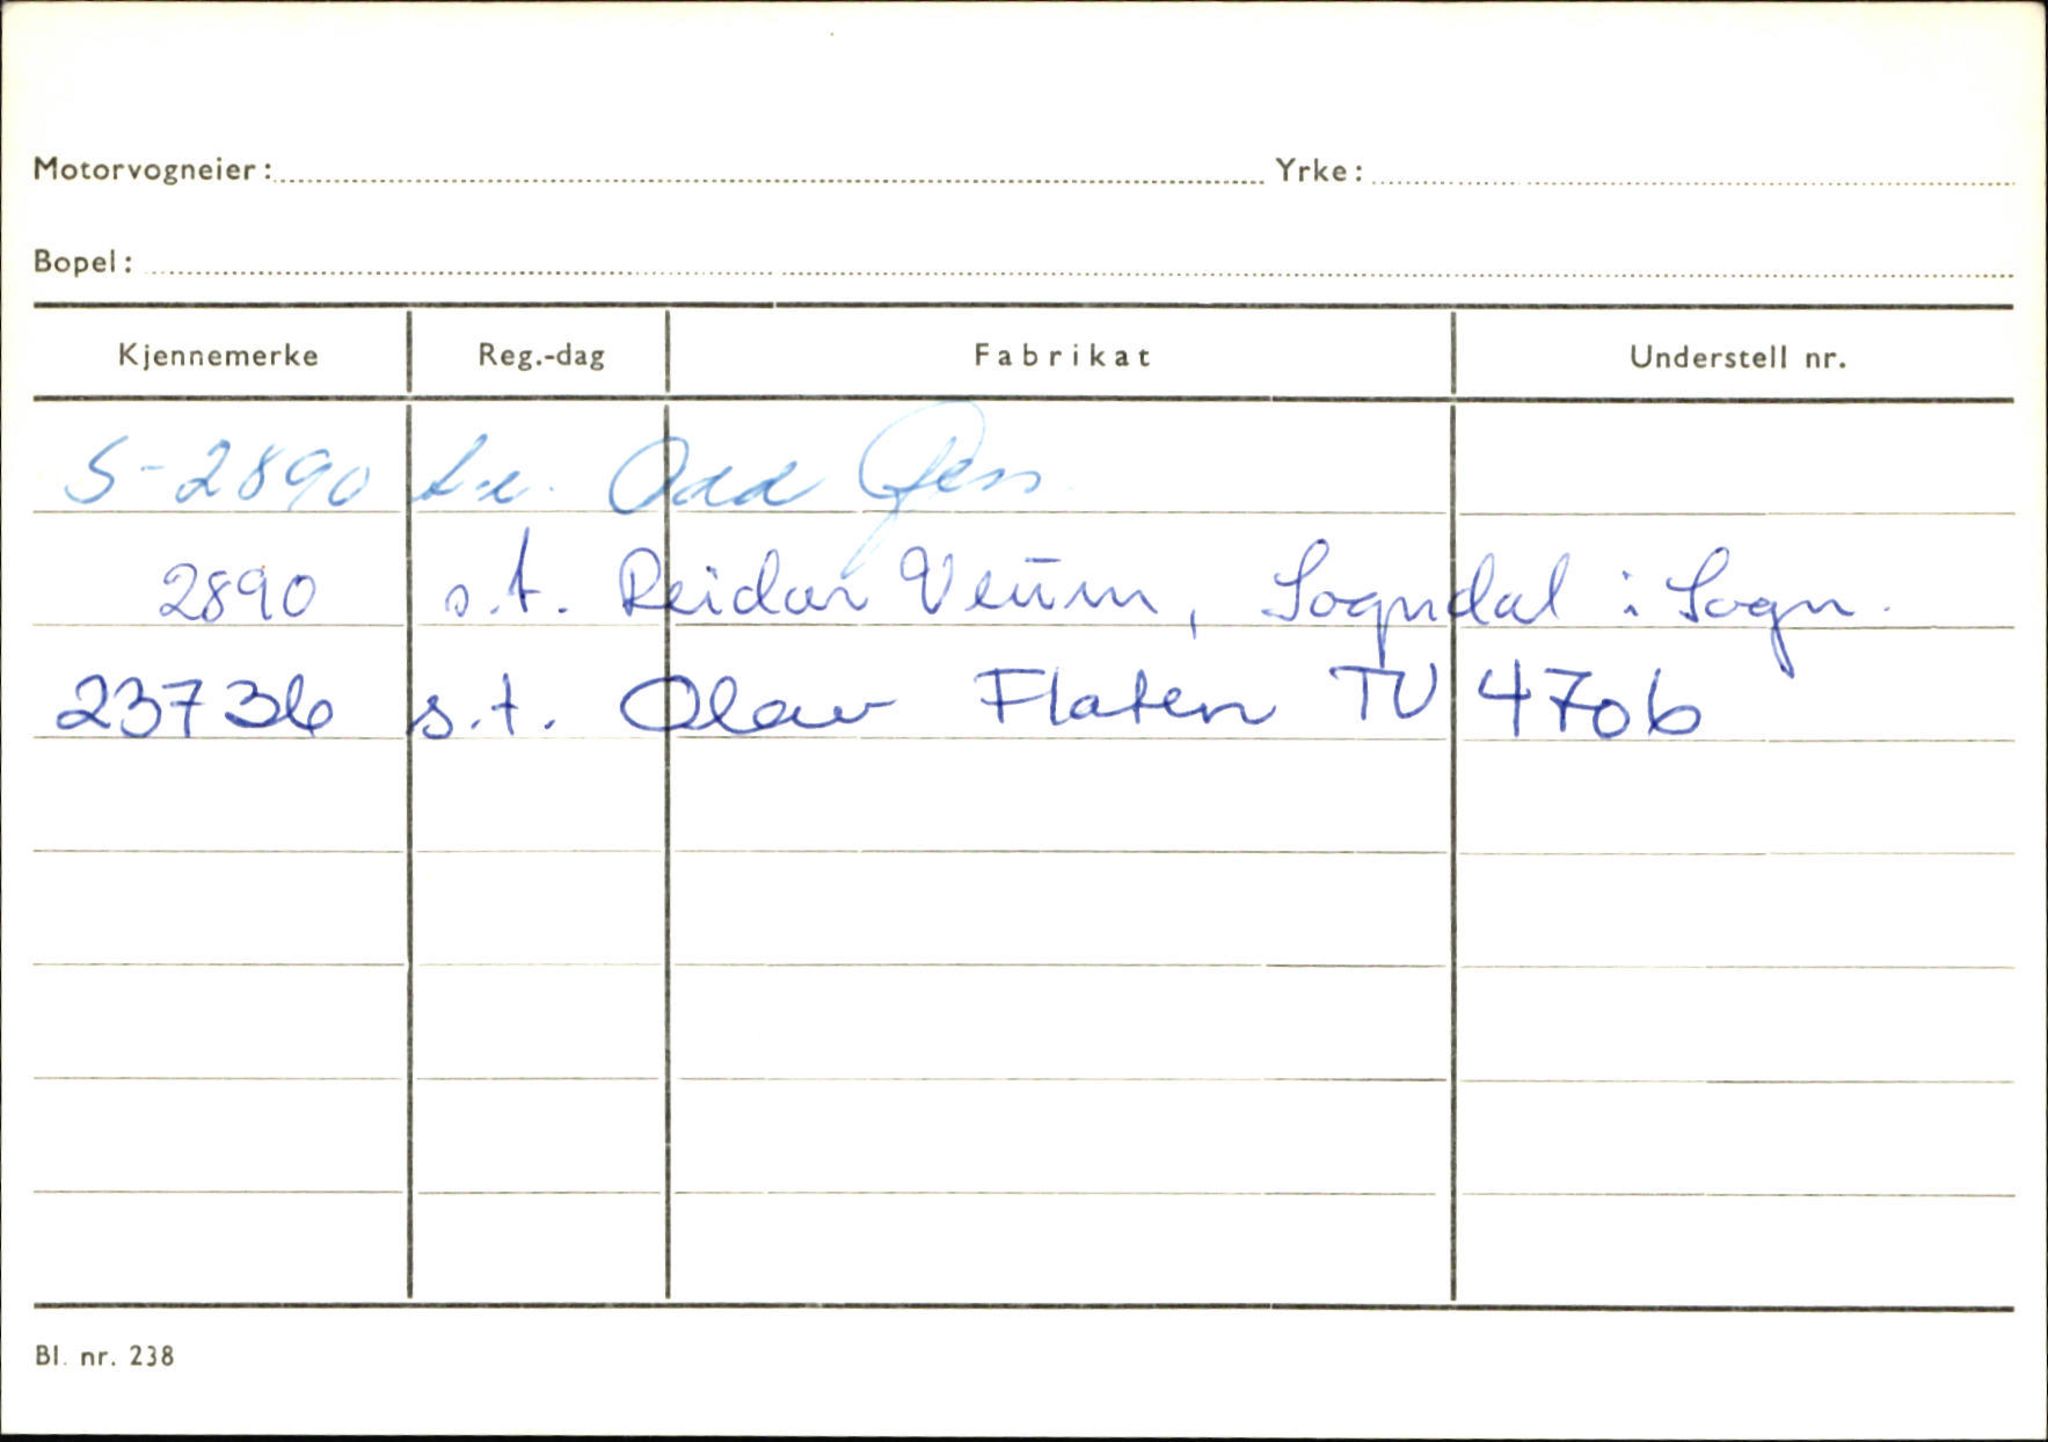 Motorvogneier: Yrke:
Bopel:
Kjennemerke Reg.-dag Fabrikat Understell nr.
S-2890 Odd
2890 s.t. Reidar Veum, Sogndal i Sogn.
23736 s.t. Olav Flaten TU 4706
Bl. nr. 238